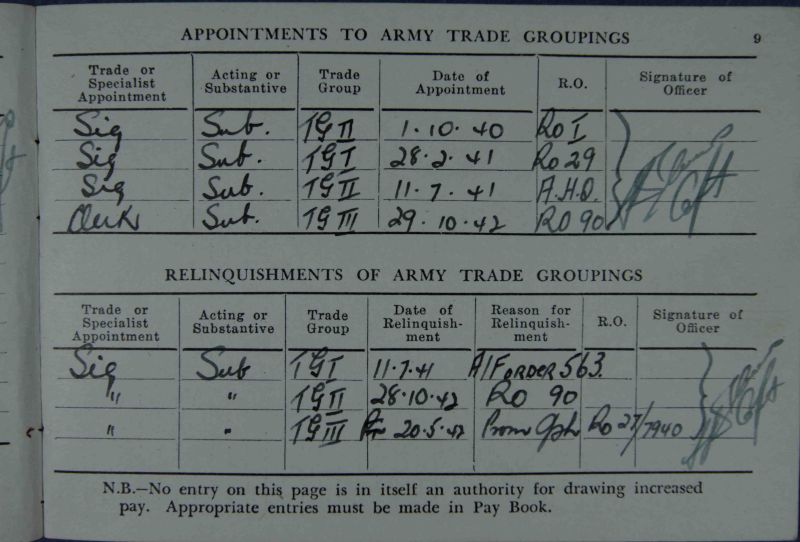 APPOINTMENTS TO ARMY TRADE GROUPINGS 9
Trade or Specialist Appointment Acting or Substantive Trade Group Date of Appointment R.O. Signature of Officer
Sig Sub. TG II 1.10.40 Ro I
Sig Sub. TG I 28.2.41 Ro 29
Sig Sub. TG II 11.7.41 A.H.Q.
Clerk Sub. TG III 29.10.42 RO 90
RELINQUISHMENTS OF ARMY TRADE GROUPINGS
Trade or Specialist Appointment Acting or Substantive Trade Group Date of Relinquish-ment Reason for Relinquish-ment R.O. Signature of Officer
Sig Sub TG I 11.7.41 AIF ORDER 563.
" " TG II 28.10.42 RO 90
" " TG III 20.5.42 Prom Ro 27/7940
N.B.—No entry on this page is in itself an authority for drawing increased
pay. Appropriate entries must be made in Pay Book.